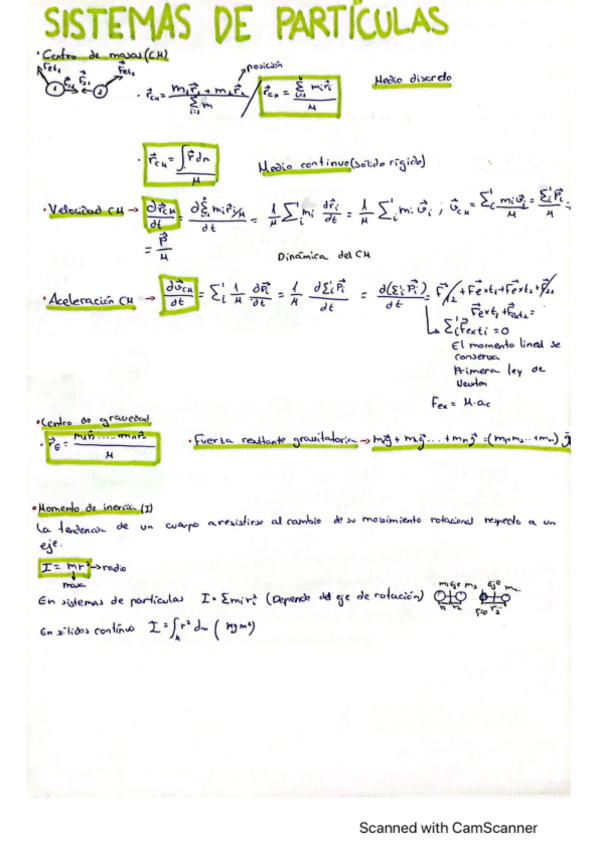 SISTEMAS DE PARTÍCULAS
• Centro de masas (CM)
posición
r⃗CM = m₁r⃗₁ + m₂r⃗₂ / Σ m
r⃗CM = Σ mᵢr⃗ᵢ / M
Medio discreto
r⃗CM = ∫ r⃗ dm / M
Medio continuo (sólido rígido)
• Velocidad CM → ∂r⃗CM/dt = ∂Σ mᵢr⃗ᵢ/M / dt = 1/M Σᵢ mᵢ dr⃗ᵢ/dt = 1/M Σᵢ mᵢ v⃗ᵢ ; v⃗CM = Σᵢ mᵢv⃗ᵢ / M = Σᵢ P⃗ᵢ / M =
= P⃗ / M
Dinámica del CM
• Aceleración CM → ∂v⃗CM/dt = Σᵢ 1/M ∂P⃗ᵢ/dt = 1/M ∂Σᵢ P⃗ᵢ/dt = ∂(Σᵢ P⃗ᵢ)/dt = F⃗₁₂ + F⃗ext₁ + F⃗ext₂ + F⃗₂₁
F⃗ext₁ + F⃗ext₂ =
Σᵢ F⃗exti = 0
El momento lineal se
conserva
Primera ley de
Newton
Fex = M·ac
• Centro de gravedad
• r⃗G = m₁r⃗₁ ... mₙr⃗ₙ / M
• Fuerza resultante gravitatoria → m₁g⃗ + m₂g⃗ ... + mₙg⃗ = (m₁+m₂... +mₙ) g⃗
• Momento de inercia (I)
La tendencia de un cuerpo a resistirse al cambio de su movimiento rotacional respecto a un
eje.
I = mr² → radio
masa
En sistemas de partículas I = Σmᵢrᵢ² (Depende del eje de rotación)
m₁ eje m₂
eje m₂
r₁ r₂
r=0 r₂
En sólidos contínuo I = ∫ r² dm ( kg m²)
Scanned with CamScanner